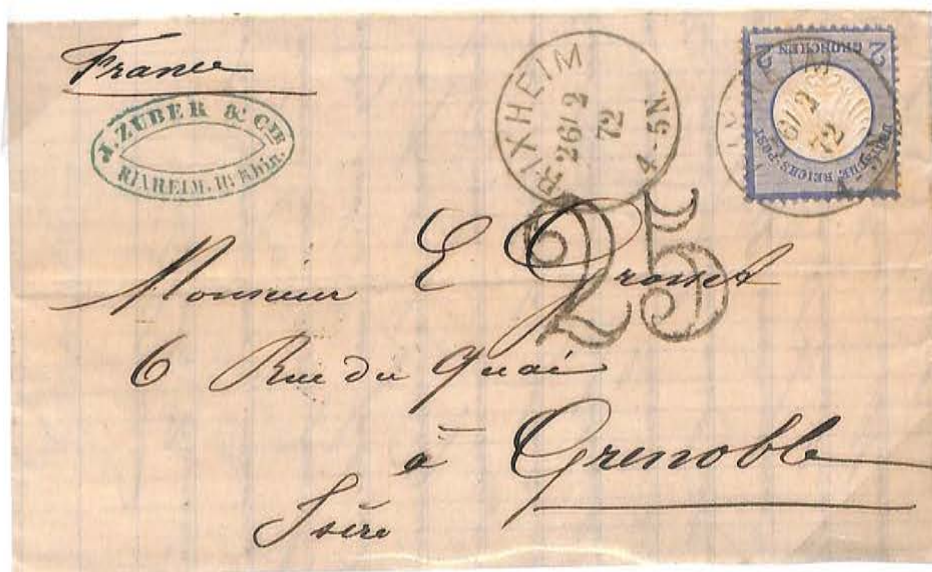 France
J. ZUBER & CIE
RIXHEIM. Ht Rhin.
RIXHEIM
26/2
72
4-5N
2 GROSCHEN 2
DEUTSCHE REICHS-POST
6/2
72
4
25
Monsieur E Grosset
6 Rue du Quai
à Grenoble
Isère